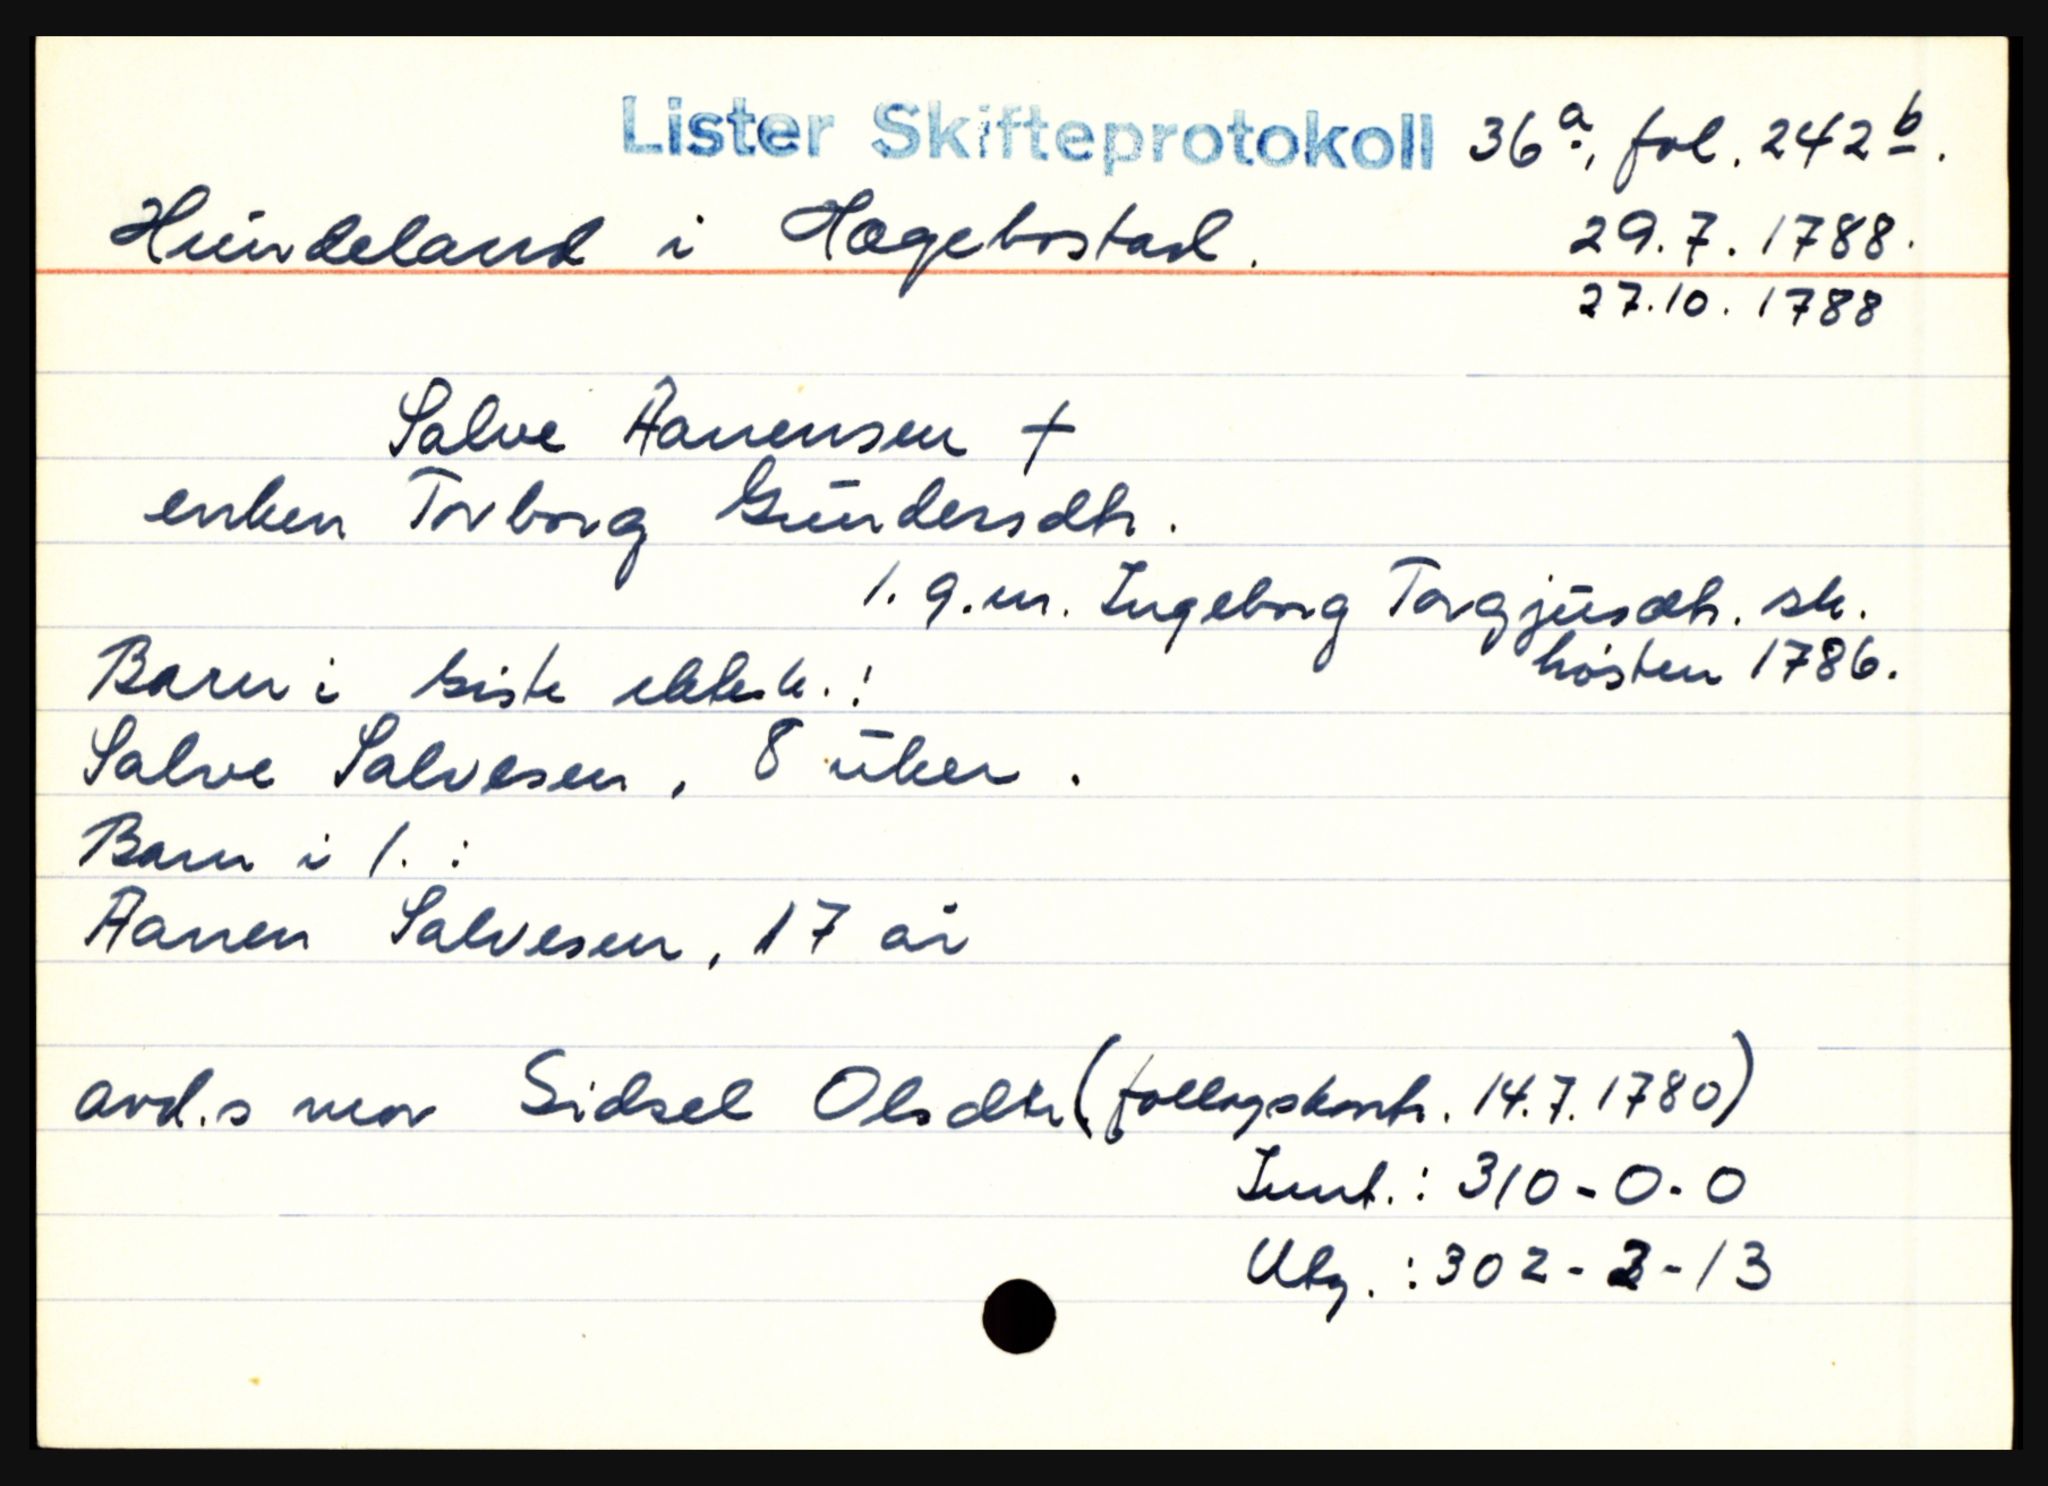 Lister Skifteprotokoll 36a, fol. 242b.
Hundeland i Hægebostad. 29.7.1788.
27.10.1788
Salve Aanensen †
enken Torborg Gundersdtr.
1. g.m. Ingeborg Torgjusdtr. sk.
høsten 1786.
Barn i siste ektesk.:
Salve Salvesen, 8 uker.
Barn i 1.:
Aanen Salvesen, 17 år
avd.s mor Sidsel Olsdtr (follogskontr. 14.7.1780)
Innt.: 310-0-0
Utg.: 302-3-13